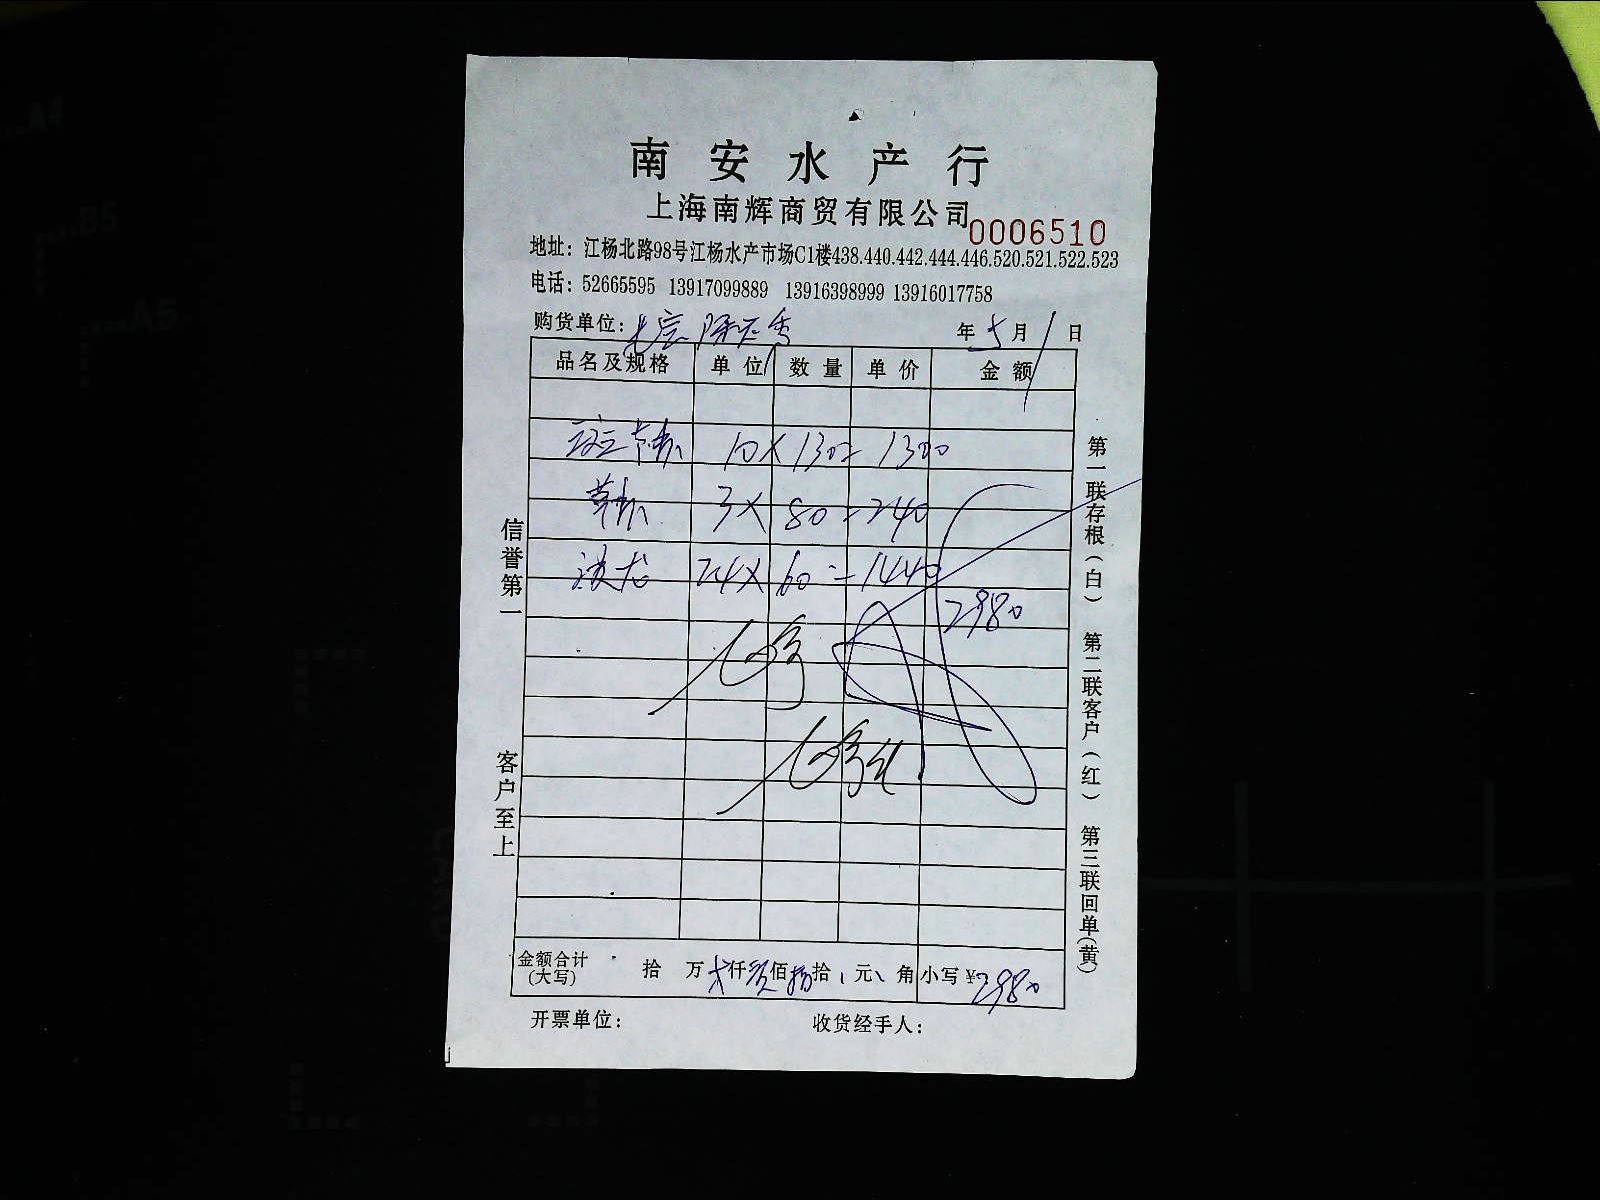 南安水产行
上海南辉商贸有限公司
0006510
地址：江杨北路98号江杨水产市场C1楼438.440.442.444.446.520.521.522.523
电话：52665595 13917099889 13916398999 13916017758
购货单位：
年5月1日
品名及规格 单位 数量 单价 金额
10×130=1300
3×80=240
24×60=1440
2980
信誉第一
客户至上
第一联存根（白） 第二联客户（红） 第三联回单（黄）
金额合计（大写） 拾 万 仟 佰 拾 元 角 小写￥2980
开票单位： 收货经手人：